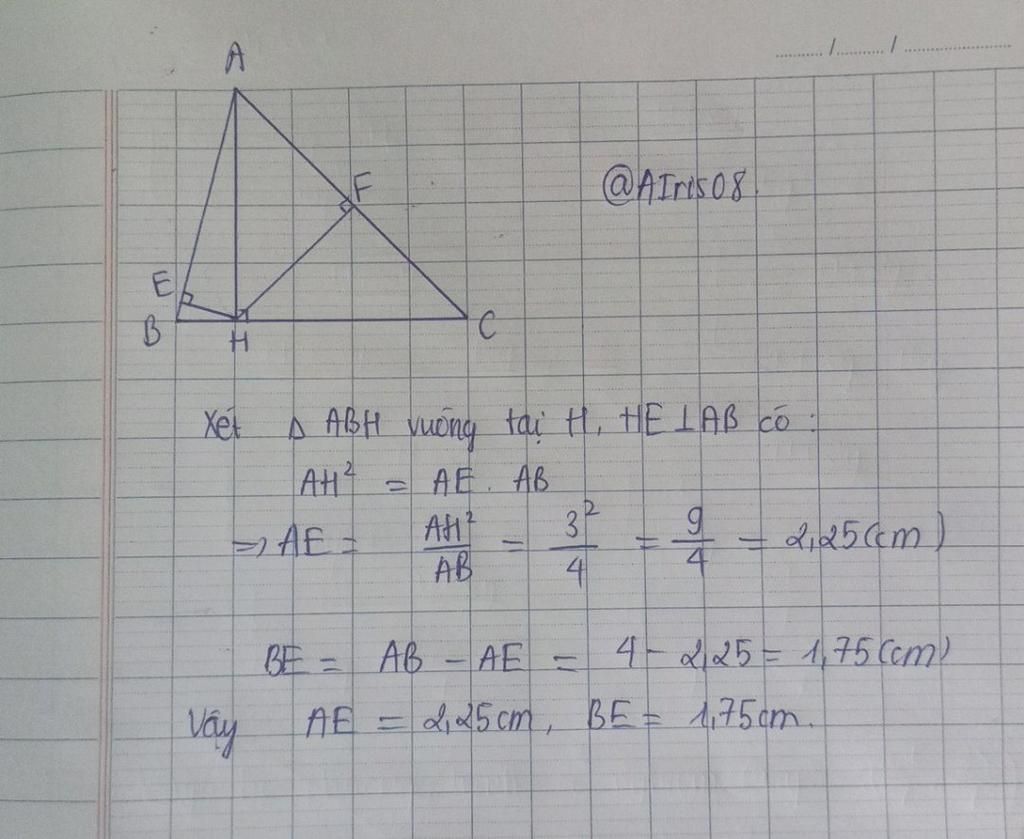 ........./........../......................
A
F
@AIris08
E
B
H
C
Xét Δ ABH vuông tại H, HE⊥AB có :
AH² = AE . AB
=> AE = AH²/AB = 3²/4 = 9/4 = 2,25(cm)
BE = AB - AE = 4 - 2,25 = 1,75(cm)
Vậy AE = 2,25cm, BE = 1,75cm.